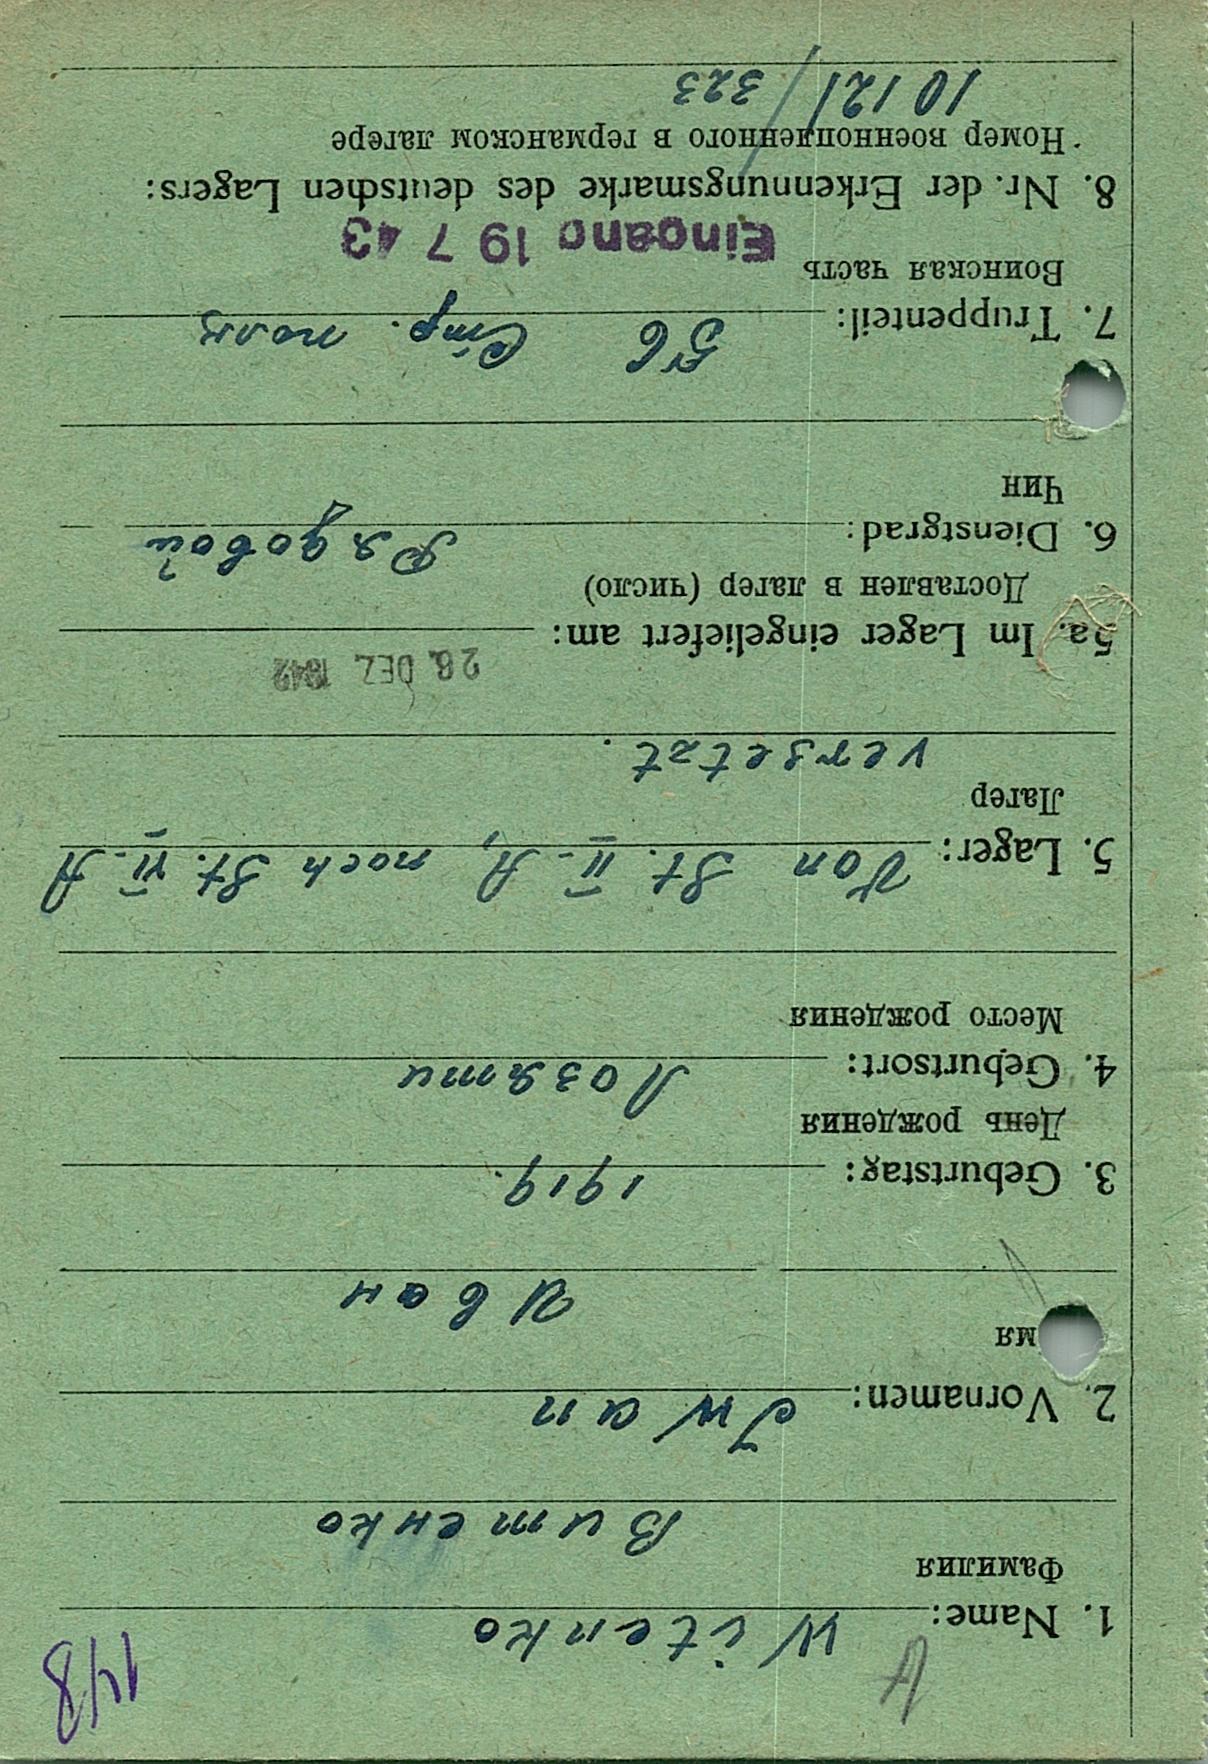 1. Name: Witenko
Фамилия
Витенко
2. Vornamen: Iwan
мя
Иван
3. Geburtstag: 1919.
День рождения
4. Geburtsort: Лозяти
Место рождения
5. Lager: Von St. II. A, nach St. VI. A
Лагер
versetzt.
28. DEZ 1942
5a. Im Lager eingeliefert am:
Доставлен в лагер (число)
6. Dienstgrad: Рядовой
Чин
7. Truppenteil: 56 Стр. полк
Воинская часть
Eingang 19 7 43
8. Nr. der Erkennungsmarke des deutschen Lagers:
Номер военнопленного в германском лагере
10121/323